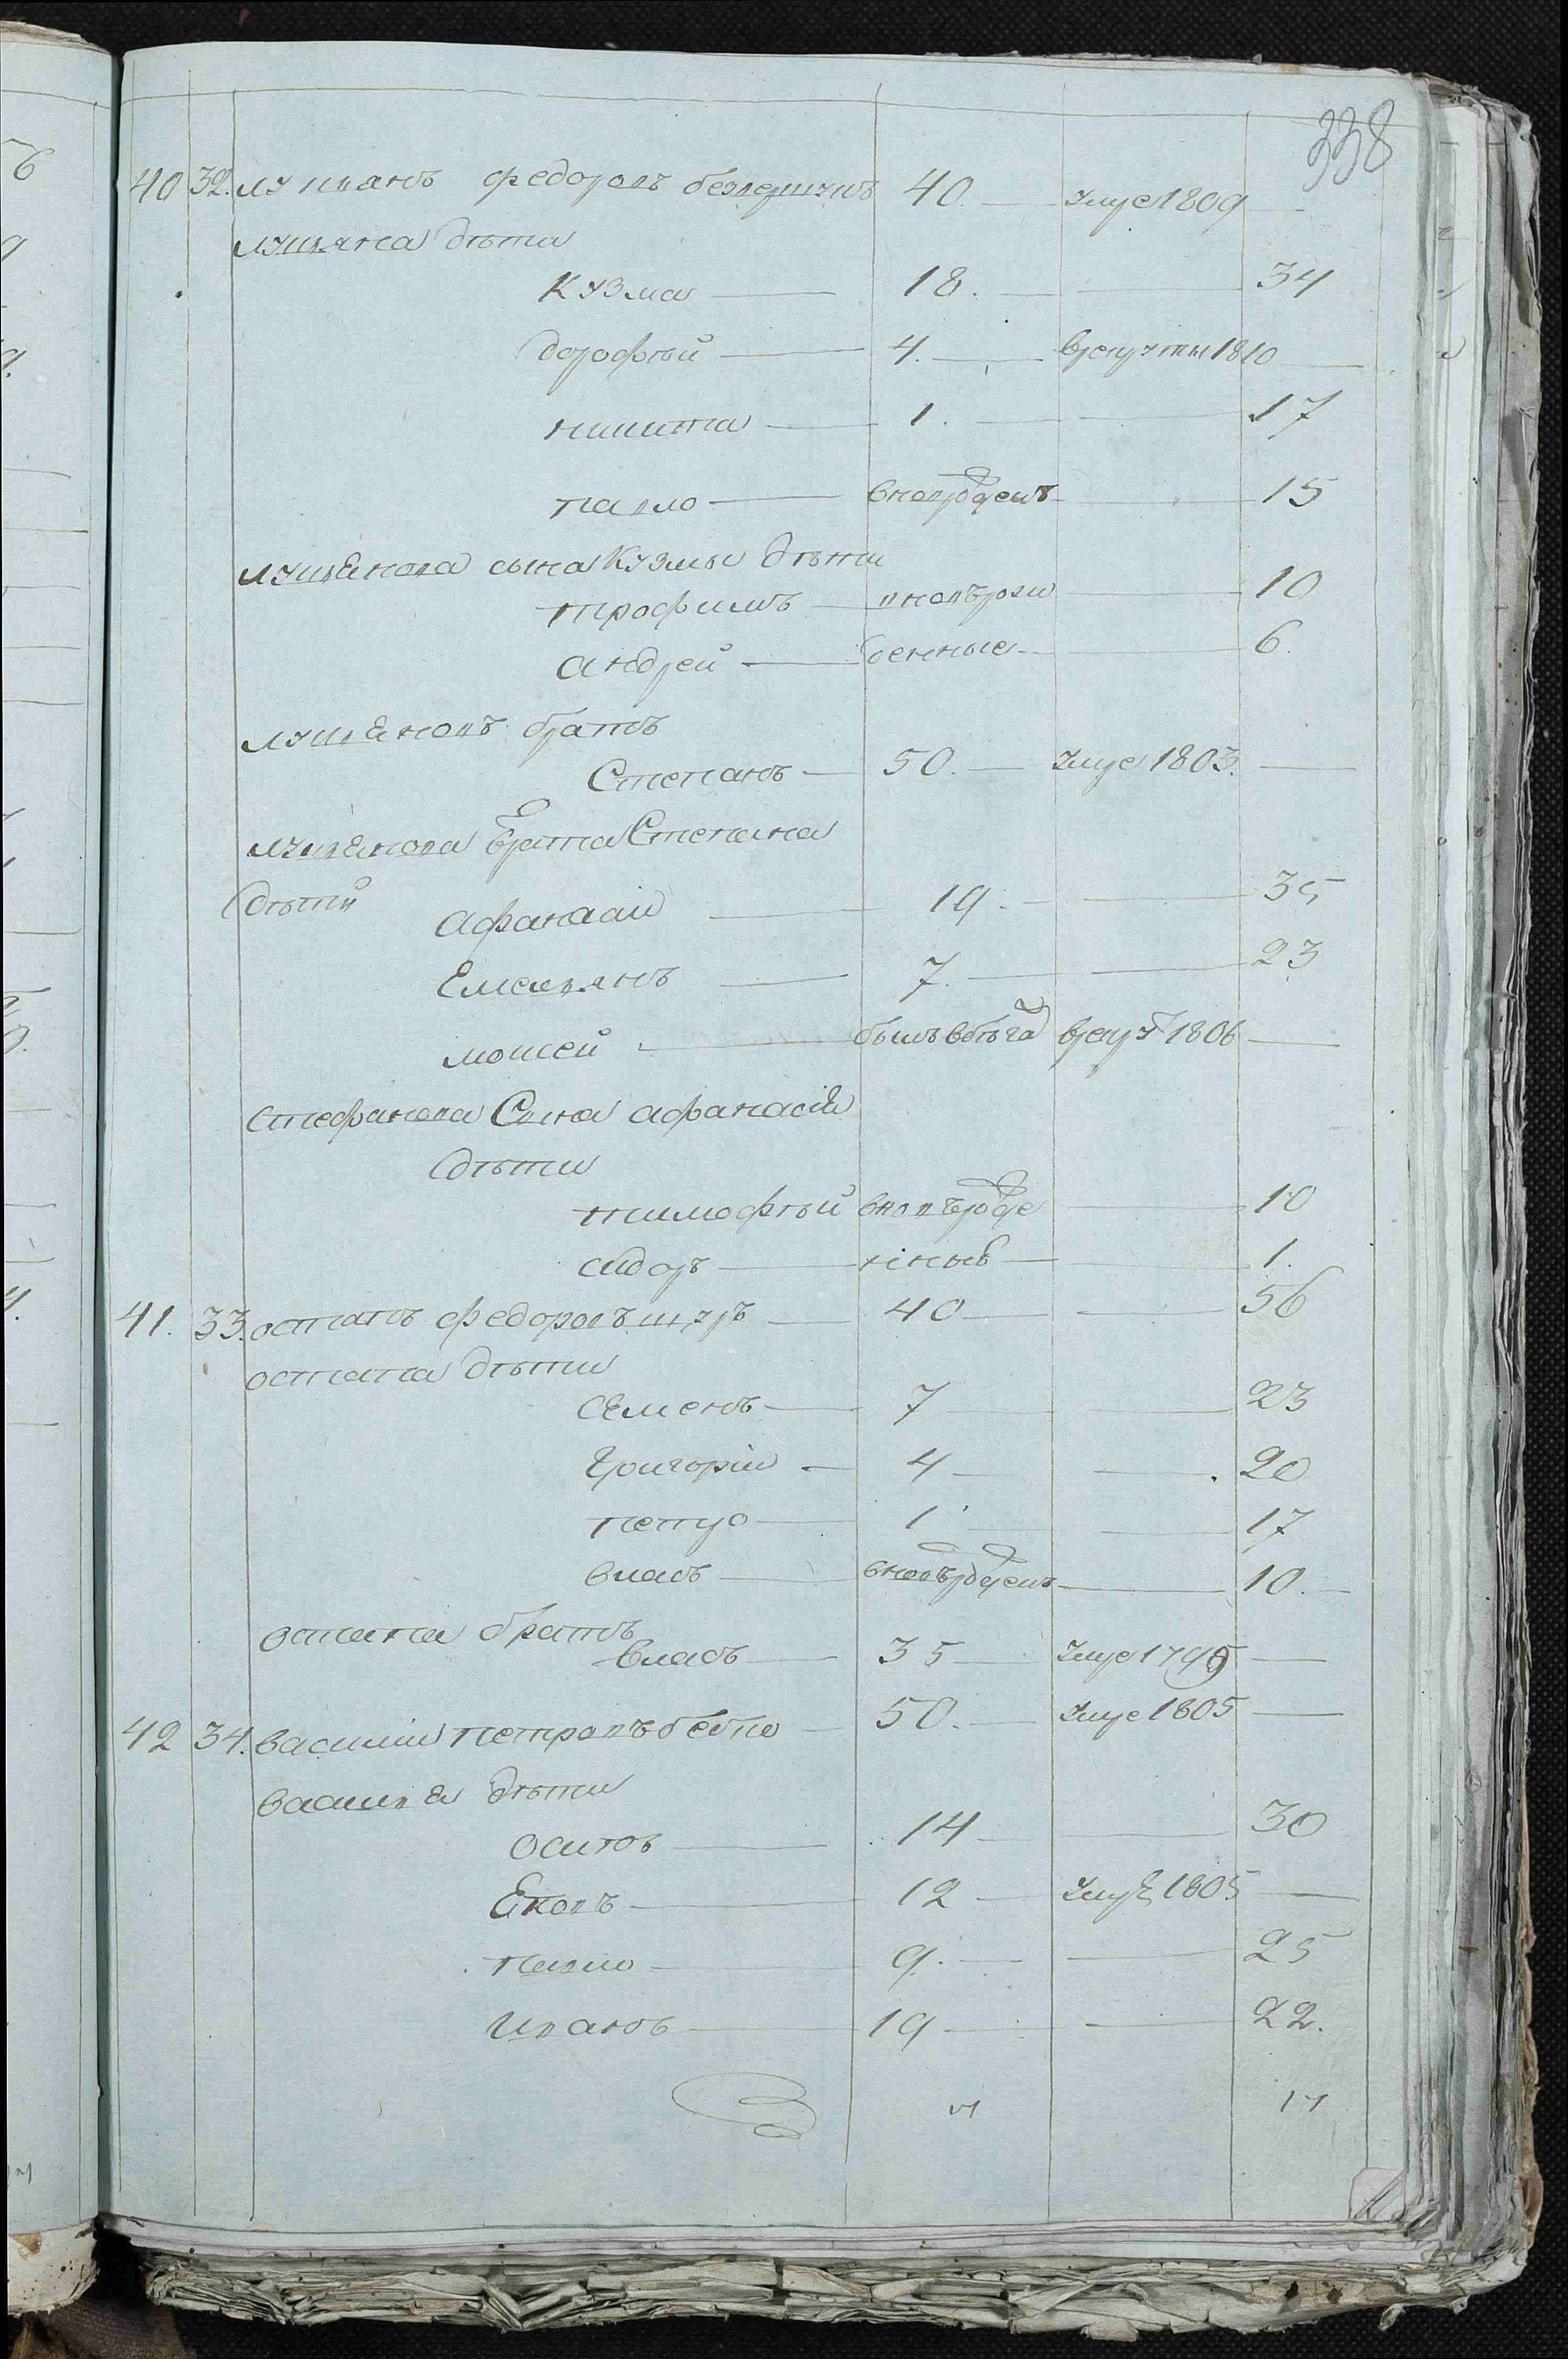 338
40 32. лукьянъ федоровъ 40. умре 1809
лукьяна дѣти
Кузма 18. 34
дорофѣй 4. врекруты 1810
никита 1. 17
павло вновьрожденъ 15
лукьянова сына Кузмы дѣти
трофимъ вновьрож 10
андрей денные 6.
лукьяновъ братъ
Степанъ 50. умре 1803.
лукьянова брата Степана
дѣти
афанасiй 19. 35
Емельянъ 7. 23
мойсей былъ вбѣга врекру 1806
Стефанова Сына афанасiя
дѣти
тимофѣй вновърожде 10
сидоръ нiные 1.
41. 33. остапъ федоровъ 40 56
остапа дѣти
Семенъ 7 23
Григорiй 4 20
петро 1 17
власъ вновърожденъ 10.
остапа братъ
власъ 35 умре 1795
42 34. василiй петровъ 50. умре 1805
василья дѣти
осипъ 14 30
Яковъ 12 умре 1805
павло 9. 25
иванъ 19 22.